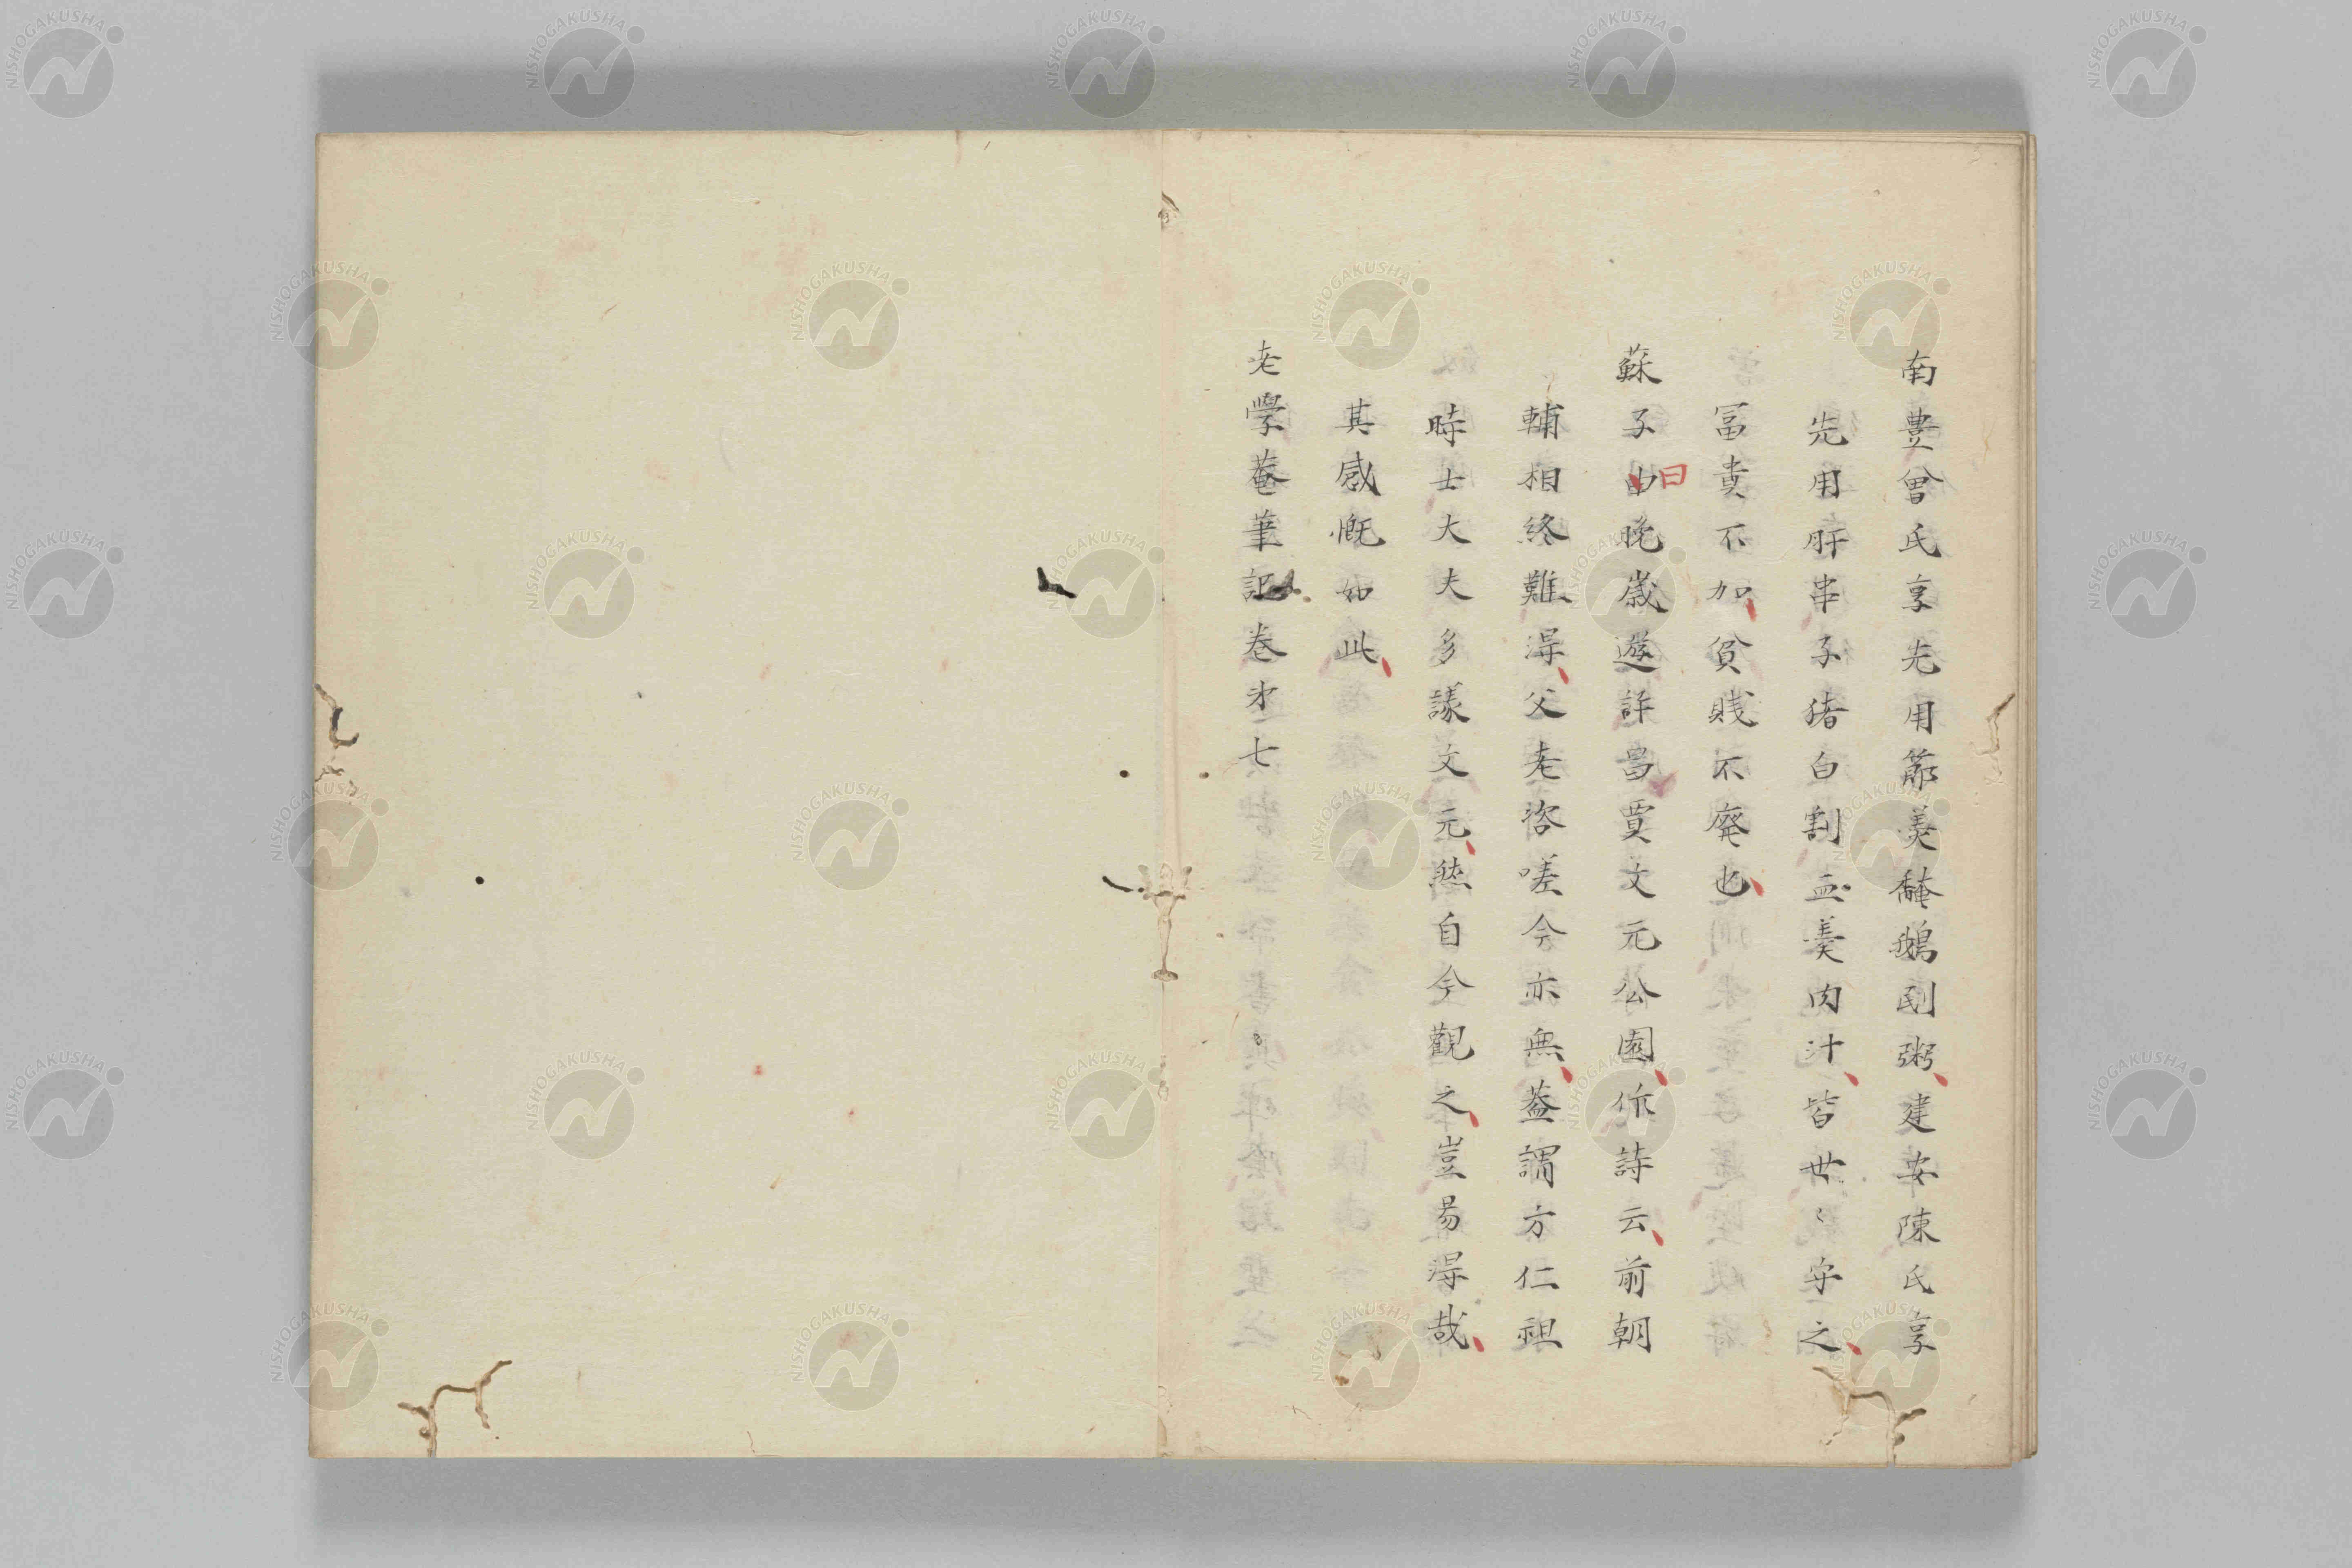 南豊曾氏享先用節羮馣鵝刮粥建安陳氏享
先用肝串子猪白割血羮肉汁皆世〻守之
冨貴不加貧賎不廃也
蘇子由曰晚歳遊許昌賈文元公園作詩云前朝
輔相終難得父老咨嗟今亦無葢謂方仁祖
時士大夫多議文元然自今觀之豈易得哉
其感慨如此
老學菴筆記卷才七
NISHOGAKUSHA